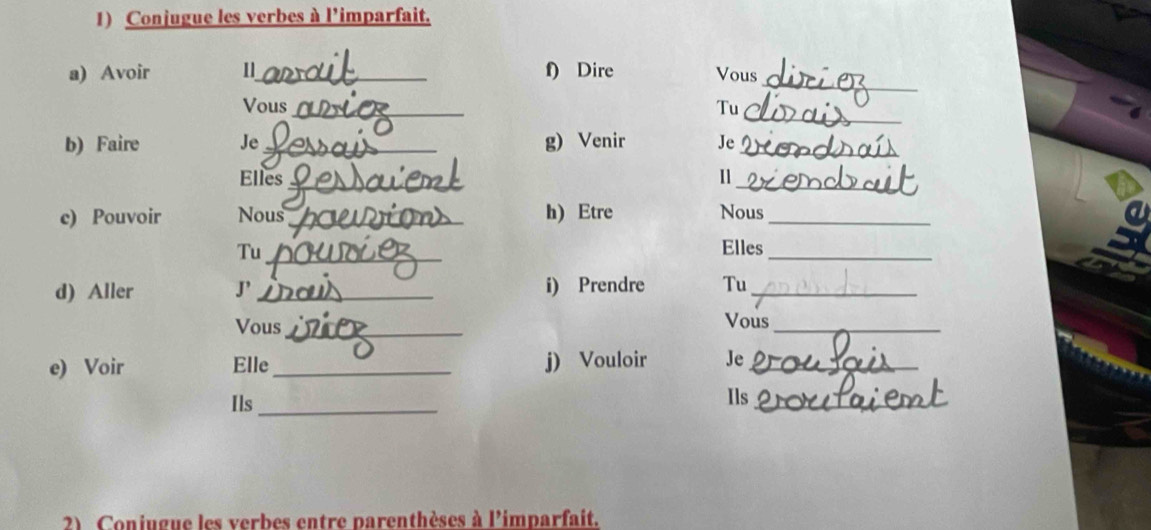 1) Conjugue les verbes à l'imparfait.
a) Avoir Il avrait f) Dire Vous diriez
Vous avriez Tu dirais
b) Faire Je fessais g) Venir Je viendrais
Elles fessaient Il viendrait
c) Pouvoir Nous pouvrions h) Etre Nous
Tu pouvriez Elles
d) Aller J' irais i) Prendre Tu
Vous iriez Vous
e) Voir Elle j) Vouloir Je voulais
Ils Ils voulaient
2) Conjugue les verbes entre parenthèses à l'imparfait.